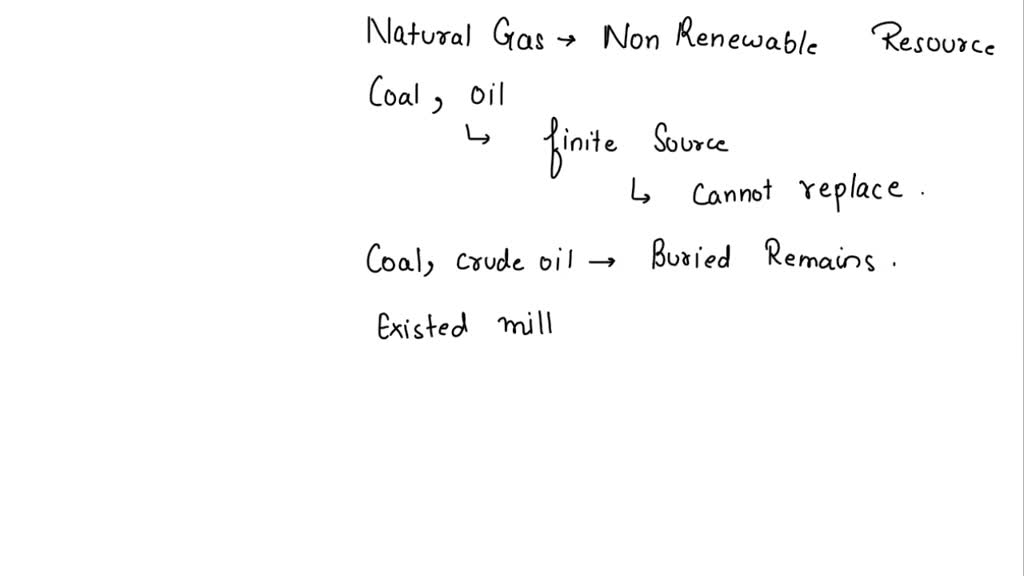 Natural Gas → Non Renewable Resource
Coal, oil
↳ finite Source
↳ cannot replace.
Coal, crude oil → Buried Remains.
Existed mill